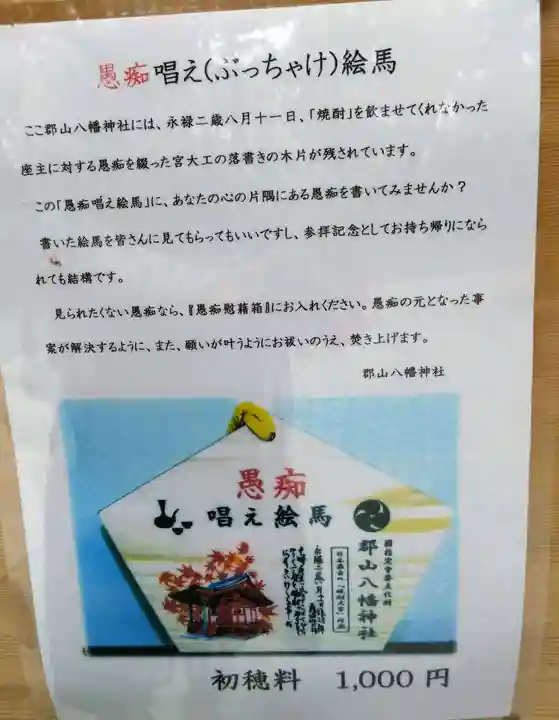 愚痴唱え(ぶっちゃけ)絵馬
ここ郡山八幡神社には、永禄二歳八月十一日、「焼酎」を飲ませてくれなかった
座主に対する愚痴を綴った宮大工の落書きの木片が残されています。
この「愚痴唱え絵馬」に、あなたの心の片隅にある愚痴を書いてみませんか?
書いた絵馬を皆さんに見てもらってもいいですし、参拝記念としてお持ち帰りになら
れても結構です。
見られたくない愚痴なら、『愚痴慰藉箱』にお入れください。愚痴の元となった事
案が解決するように、また、願いが叶うようにお祓いのうえ、焚き上げます。
郡山八幡神社
愚痴
唱え絵馬
國指定重要文化財
郡山八幡神社
初穂料 1,000円